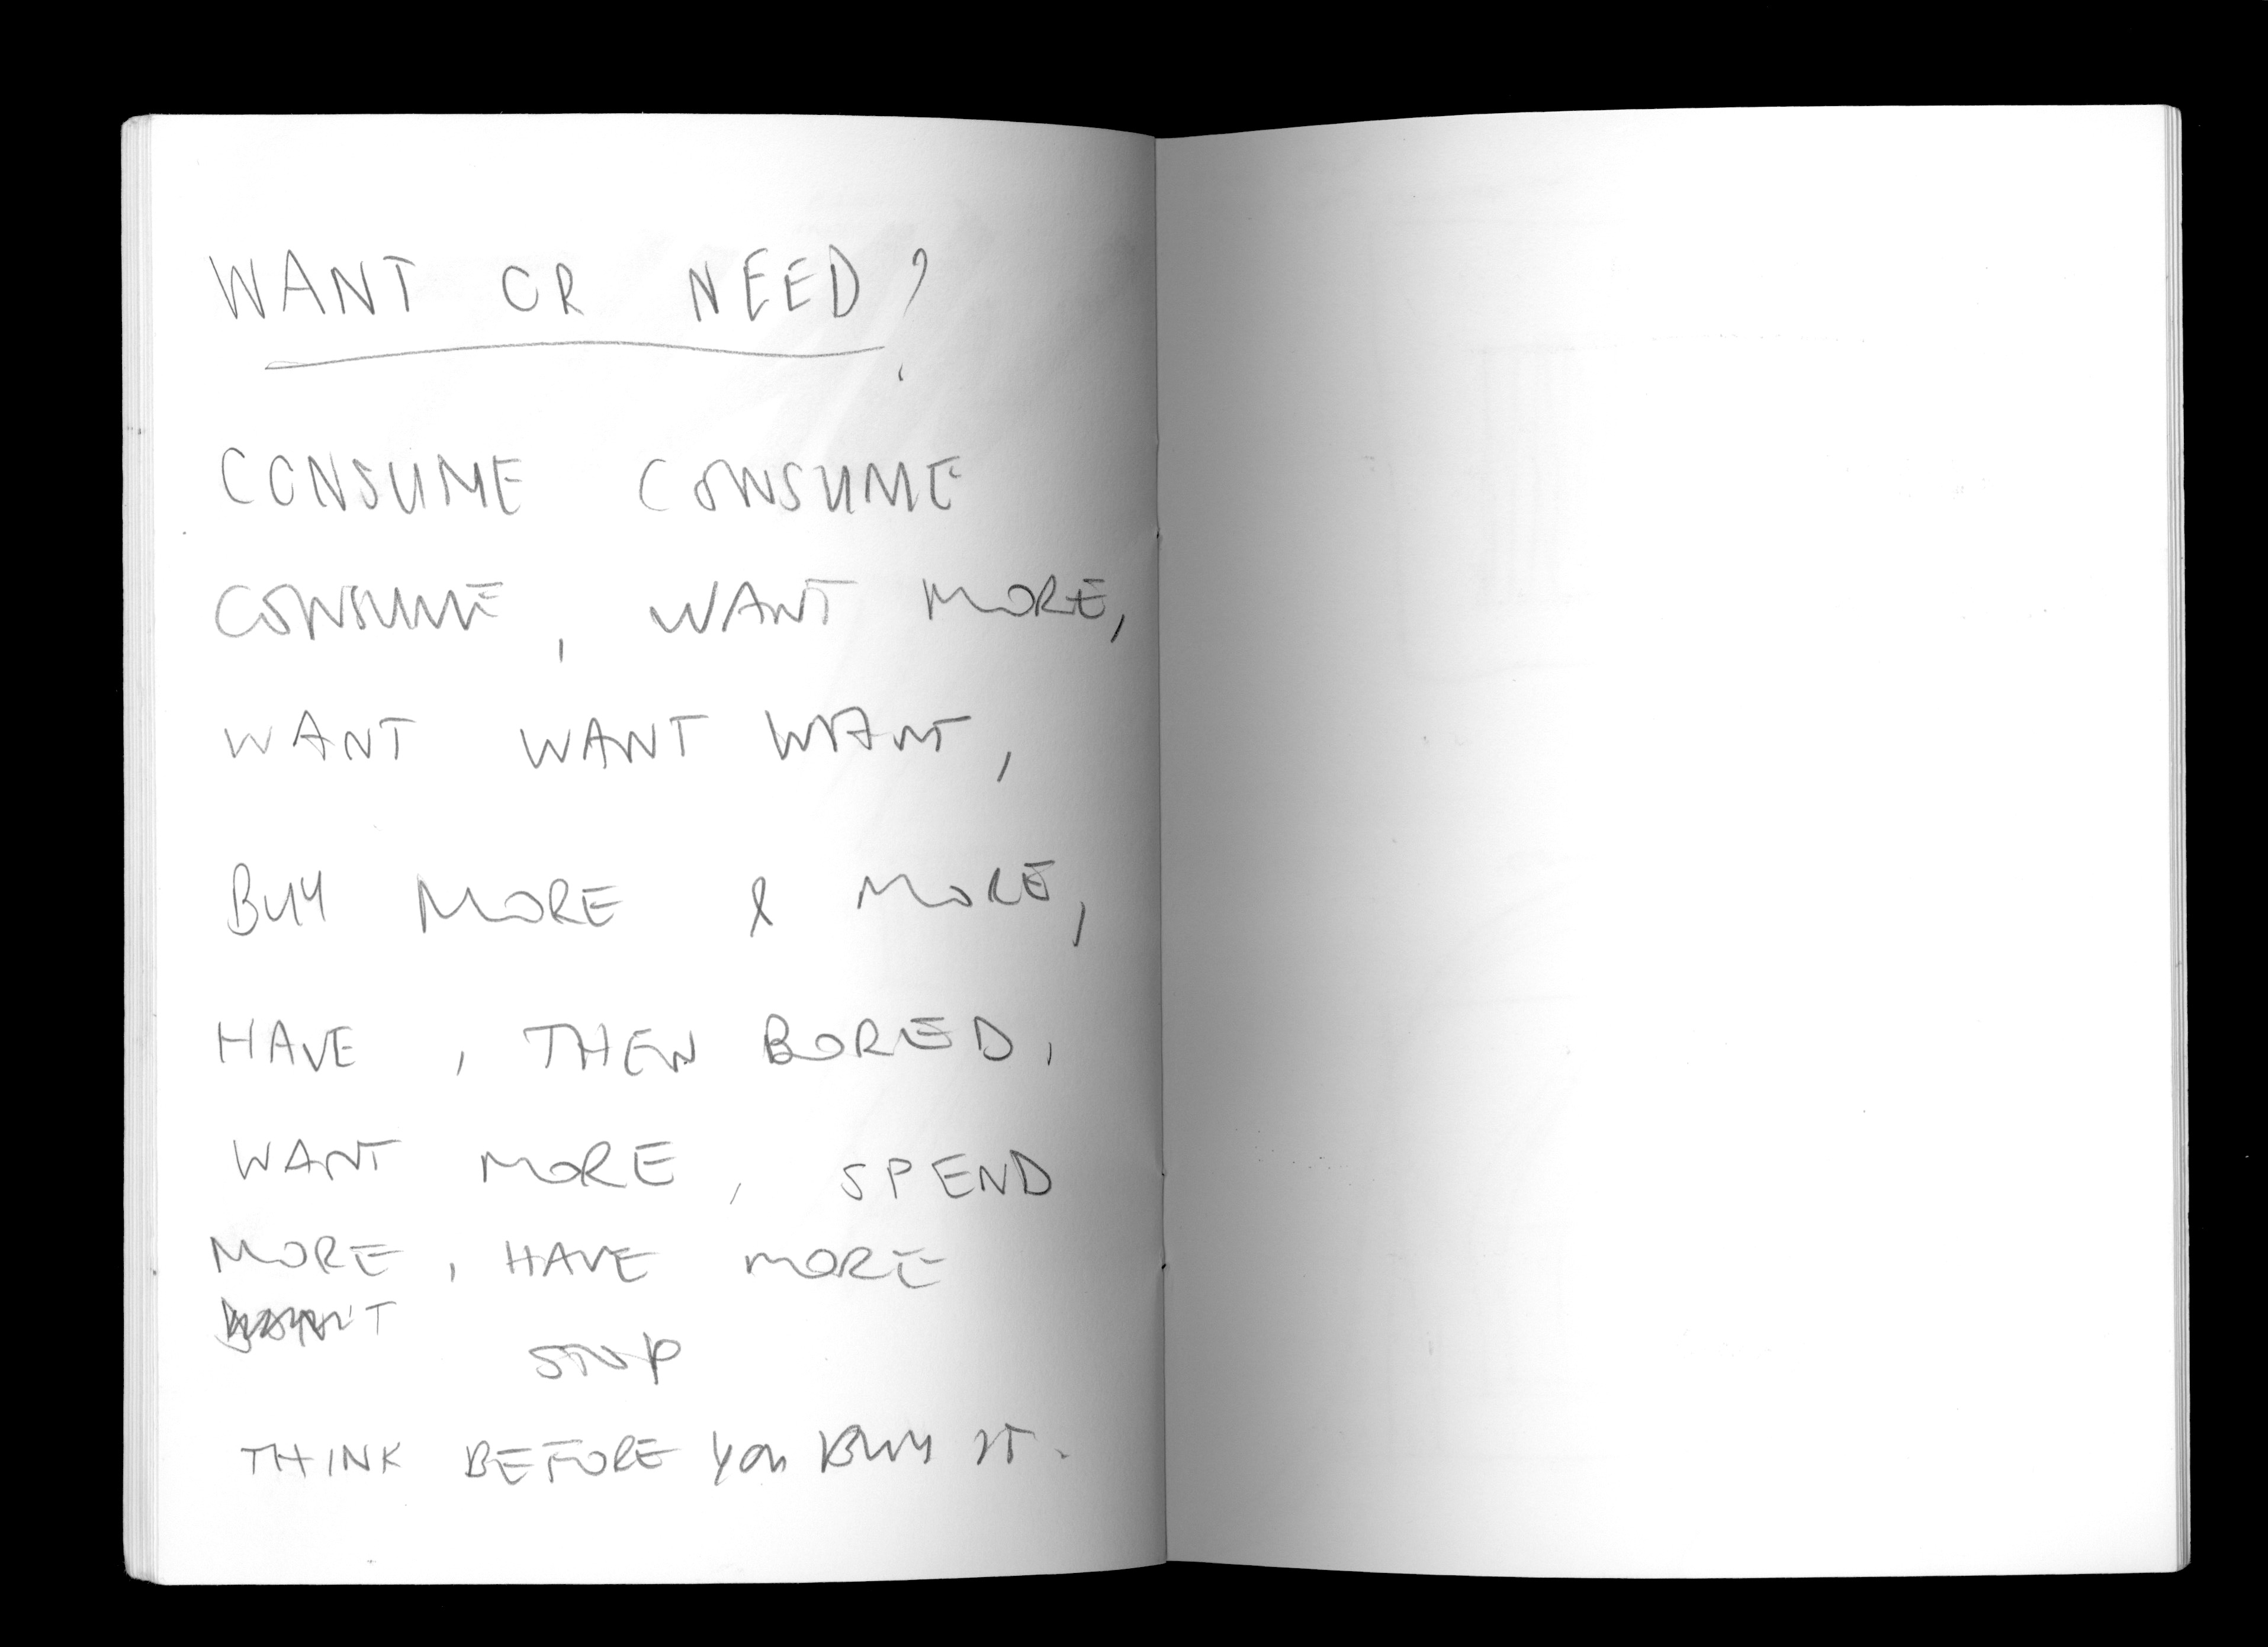 WANT OR NEED?
CONSUME CONSUME
CONSUME, WANT MORE,
WANT WANT WANT,
BUY MORE & MORE,
HAVE, THEN BORED,
WANT MORE, SPEND
MORE, HAVE MORE
STOP
THINK BEFORE YOU BUY IT.